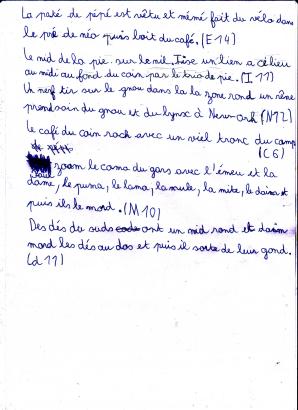 La paté de pépé est vêtu et mémé fait du vélo dans
le pré de néo puis boit du café. (E14)
le nid de la pie. sur le nil. Irise un lien a ce lieu
au midi au fond du coin par le trio de pie. (I11)
Un nerf tir sur le gnou dans la la zone rond un rêne
prend soin du gnou et du lynx à New-ork (N12)
le café du coin rock avec un viel tronc du camp
(C6)
zoom le coma du gars avec l'émeu et la
dame, le puma, le lama, la mule, la mite, le daim et
puis ils le mord. (M10)
Des dés du suds ont un nid rond et daim
mord les dés au dos et puis il sorte de leur gond.
(d11)